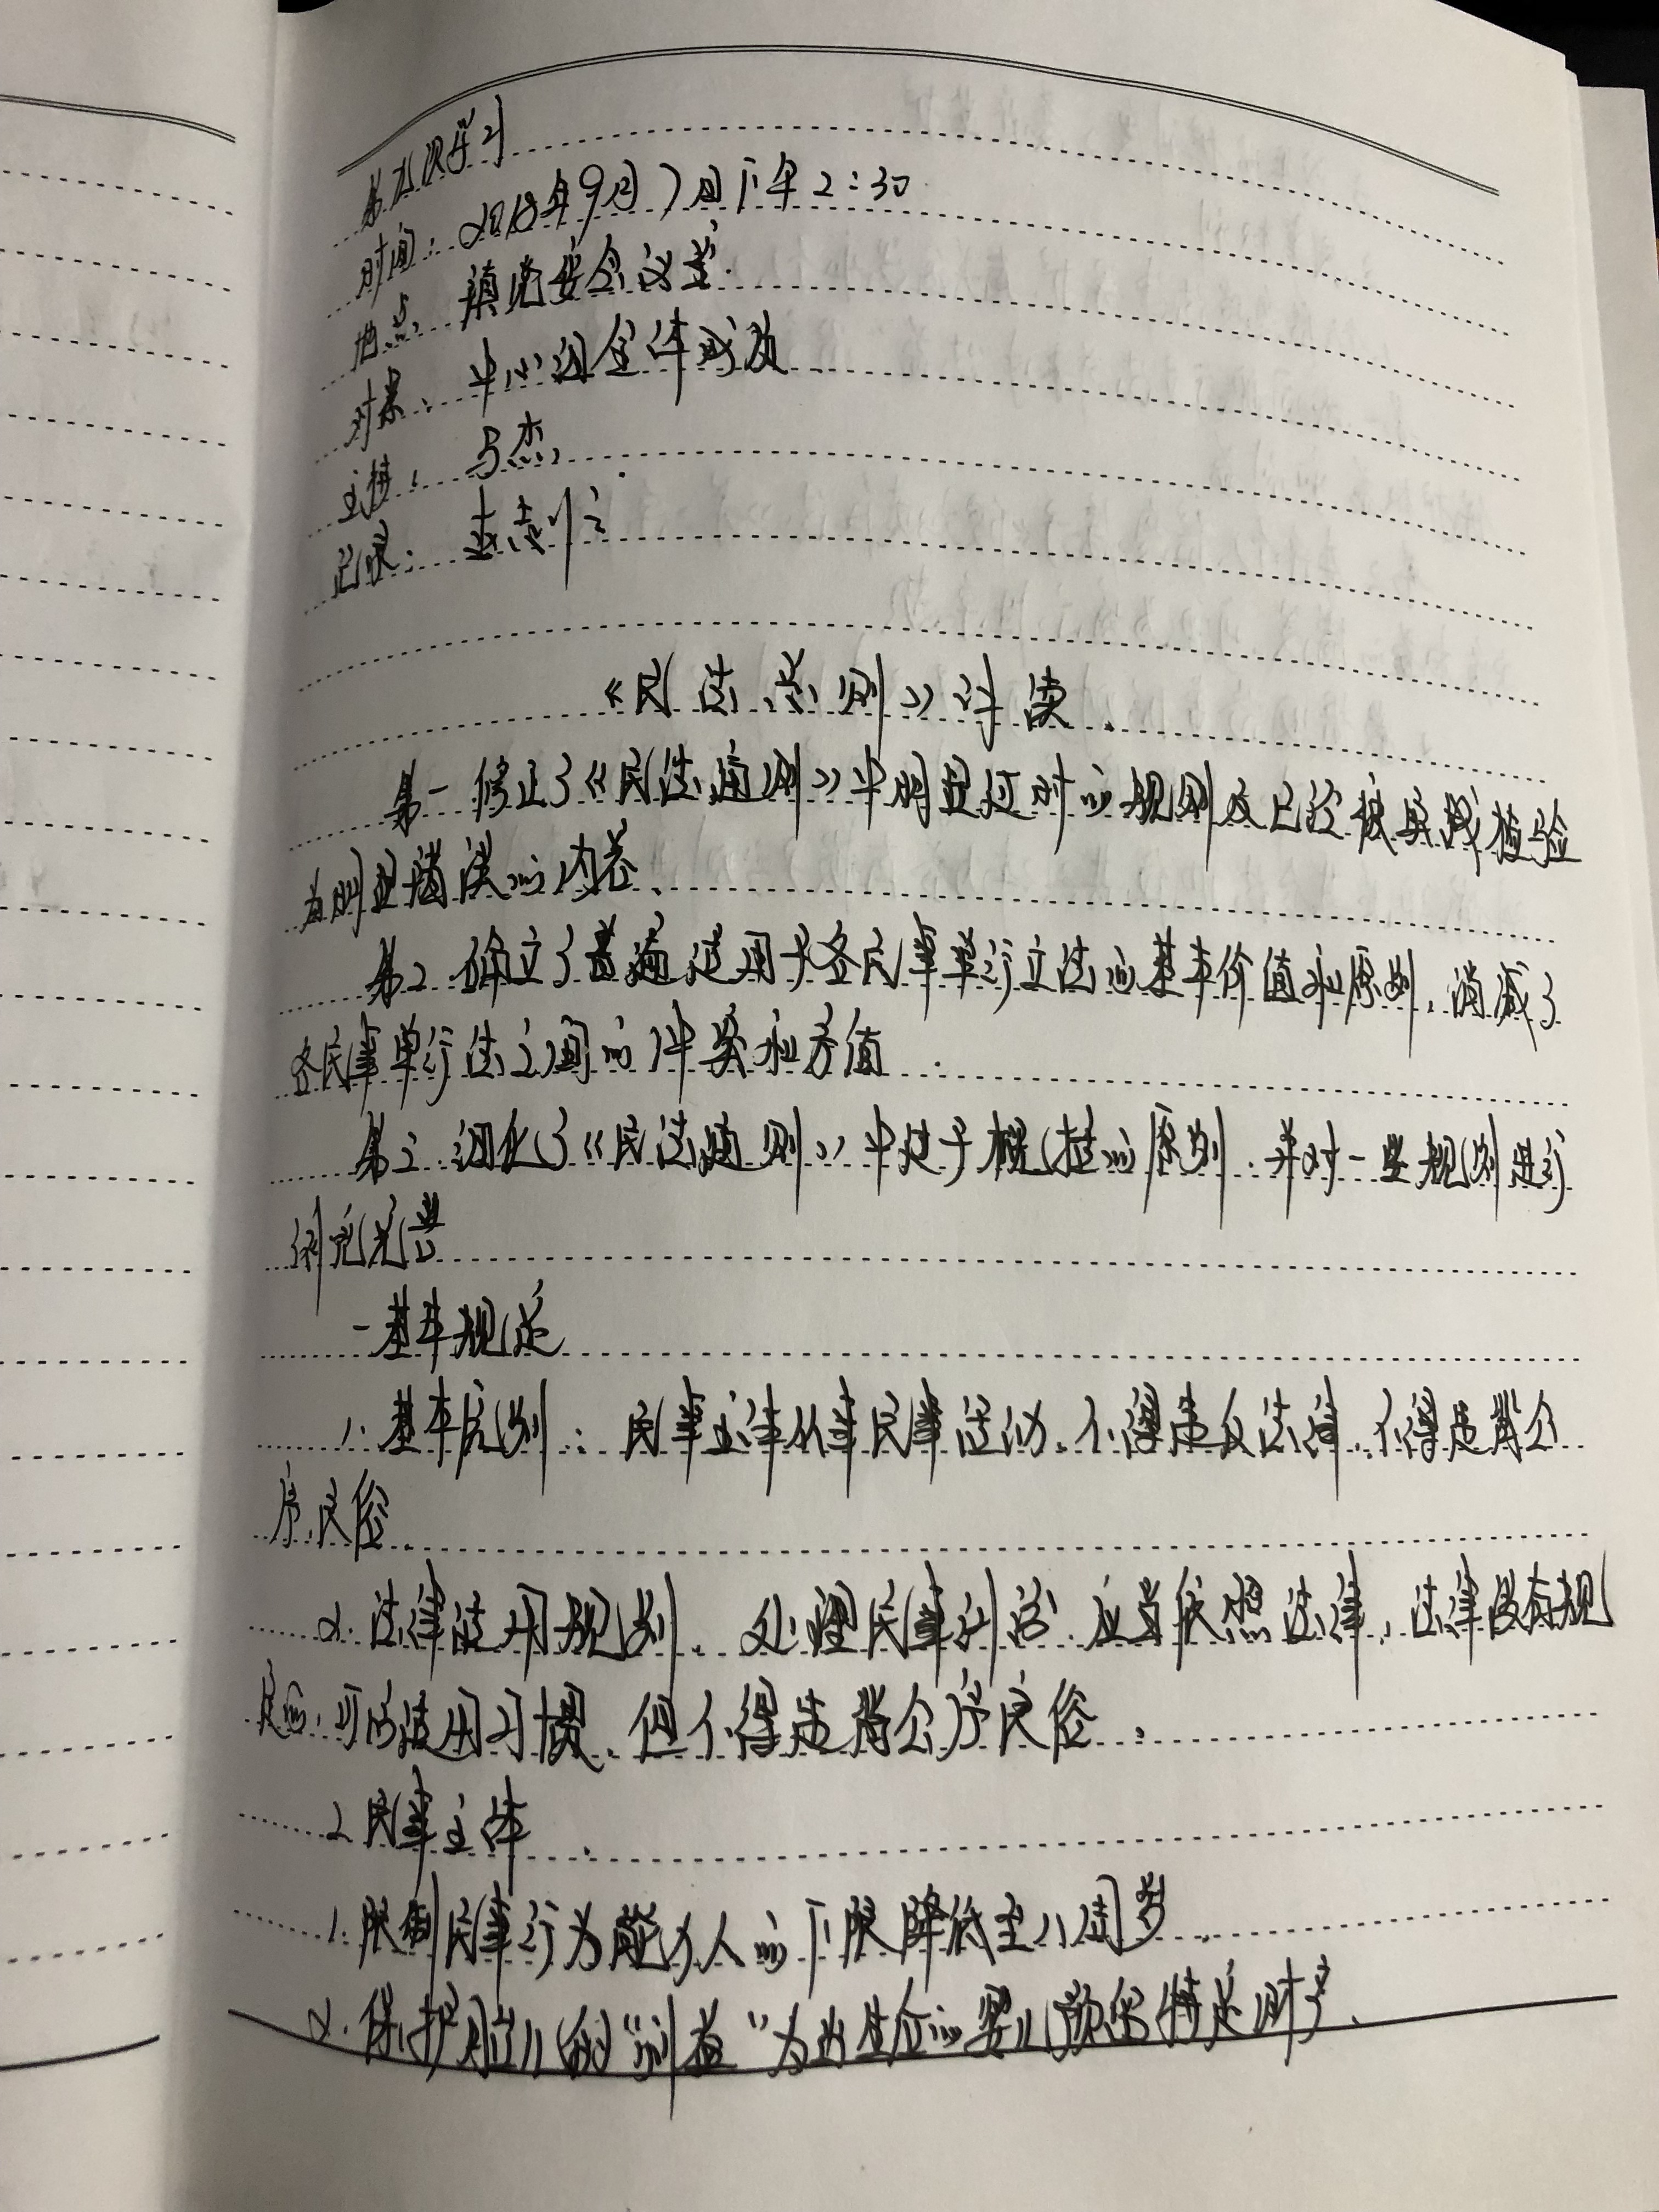 第九次学习
时间：2018年9月7日下午2:30
地点：镇党委会议室.
对象：中心组全体成员
主持：马杰
记录：
《民法总则》详读.
第一修正了《民法通则》中明显过时的规则及已经被实践检验
为明显错误的内容.
第2.确立了普遍适用于各民事单行立法的基本价值和原则，消减了
各民事单行法之间的冲突和矛盾
第三.细化了《民法通则》中过于概括的原则.并对一些规则进行
补充完善
一基本规定
1.基本原则：民事主体从事民事活动.不得违反法律.不得违背公
序良俗.
2.法律适用规则.处理民事纠纷.应当依照法律，法律没有规
定的，可以适用习惯.但不得违背公序良俗.
2民事主体.
1.限制民事行为能力人的下限降低至八周岁.
2.保护胎儿的“利益”为出生后的婴儿预留特定财产.